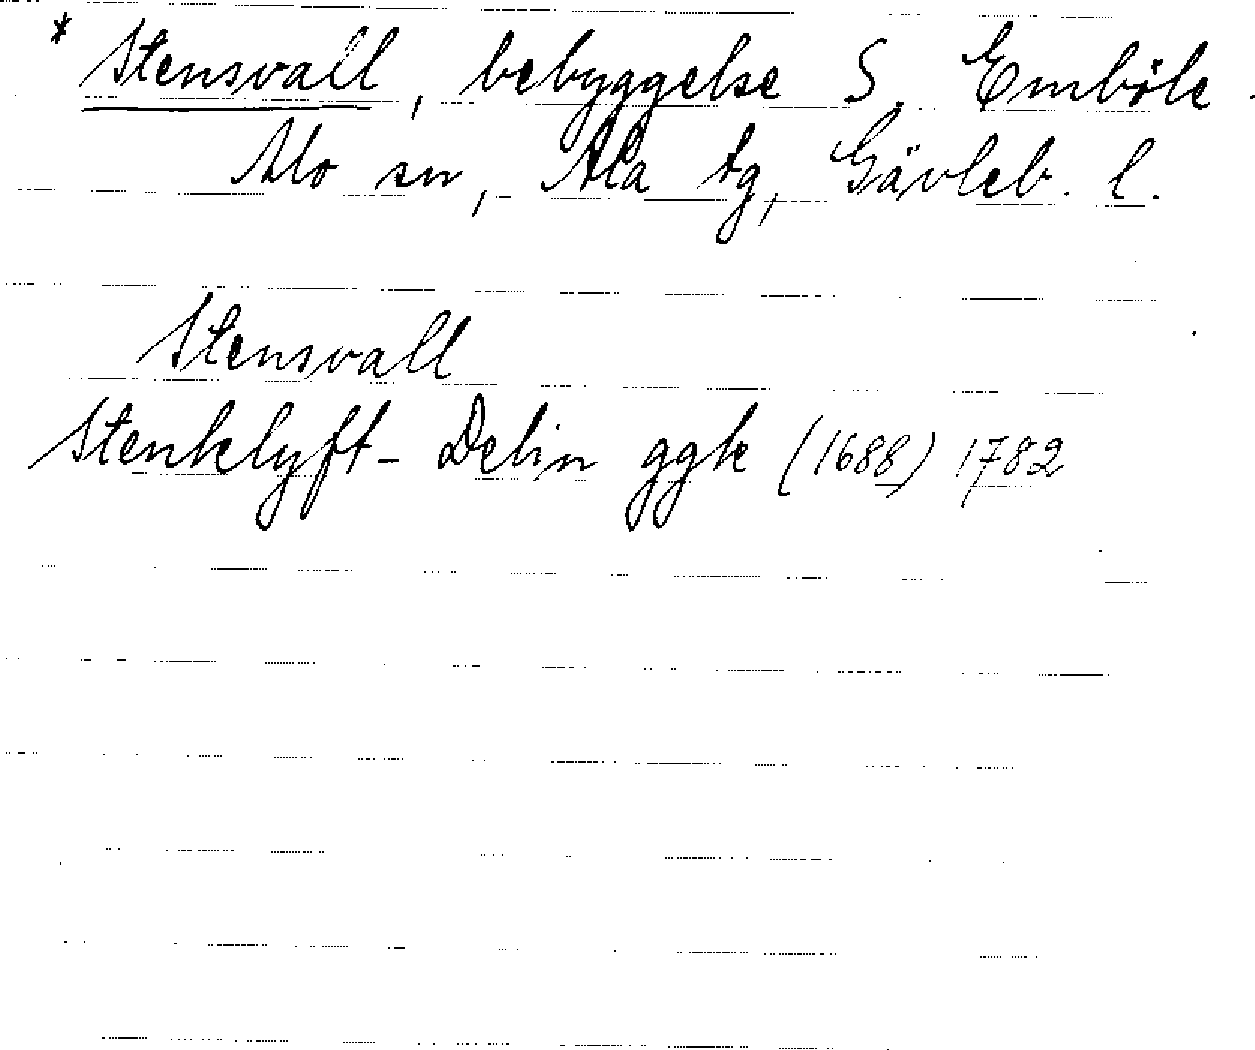 * Stensvall, bebyggelse S. Emböle.
Mo sn, Ala tg, Gävleb. l.
Stensvall
Stenklyft- Delin ggk (1688) 1782